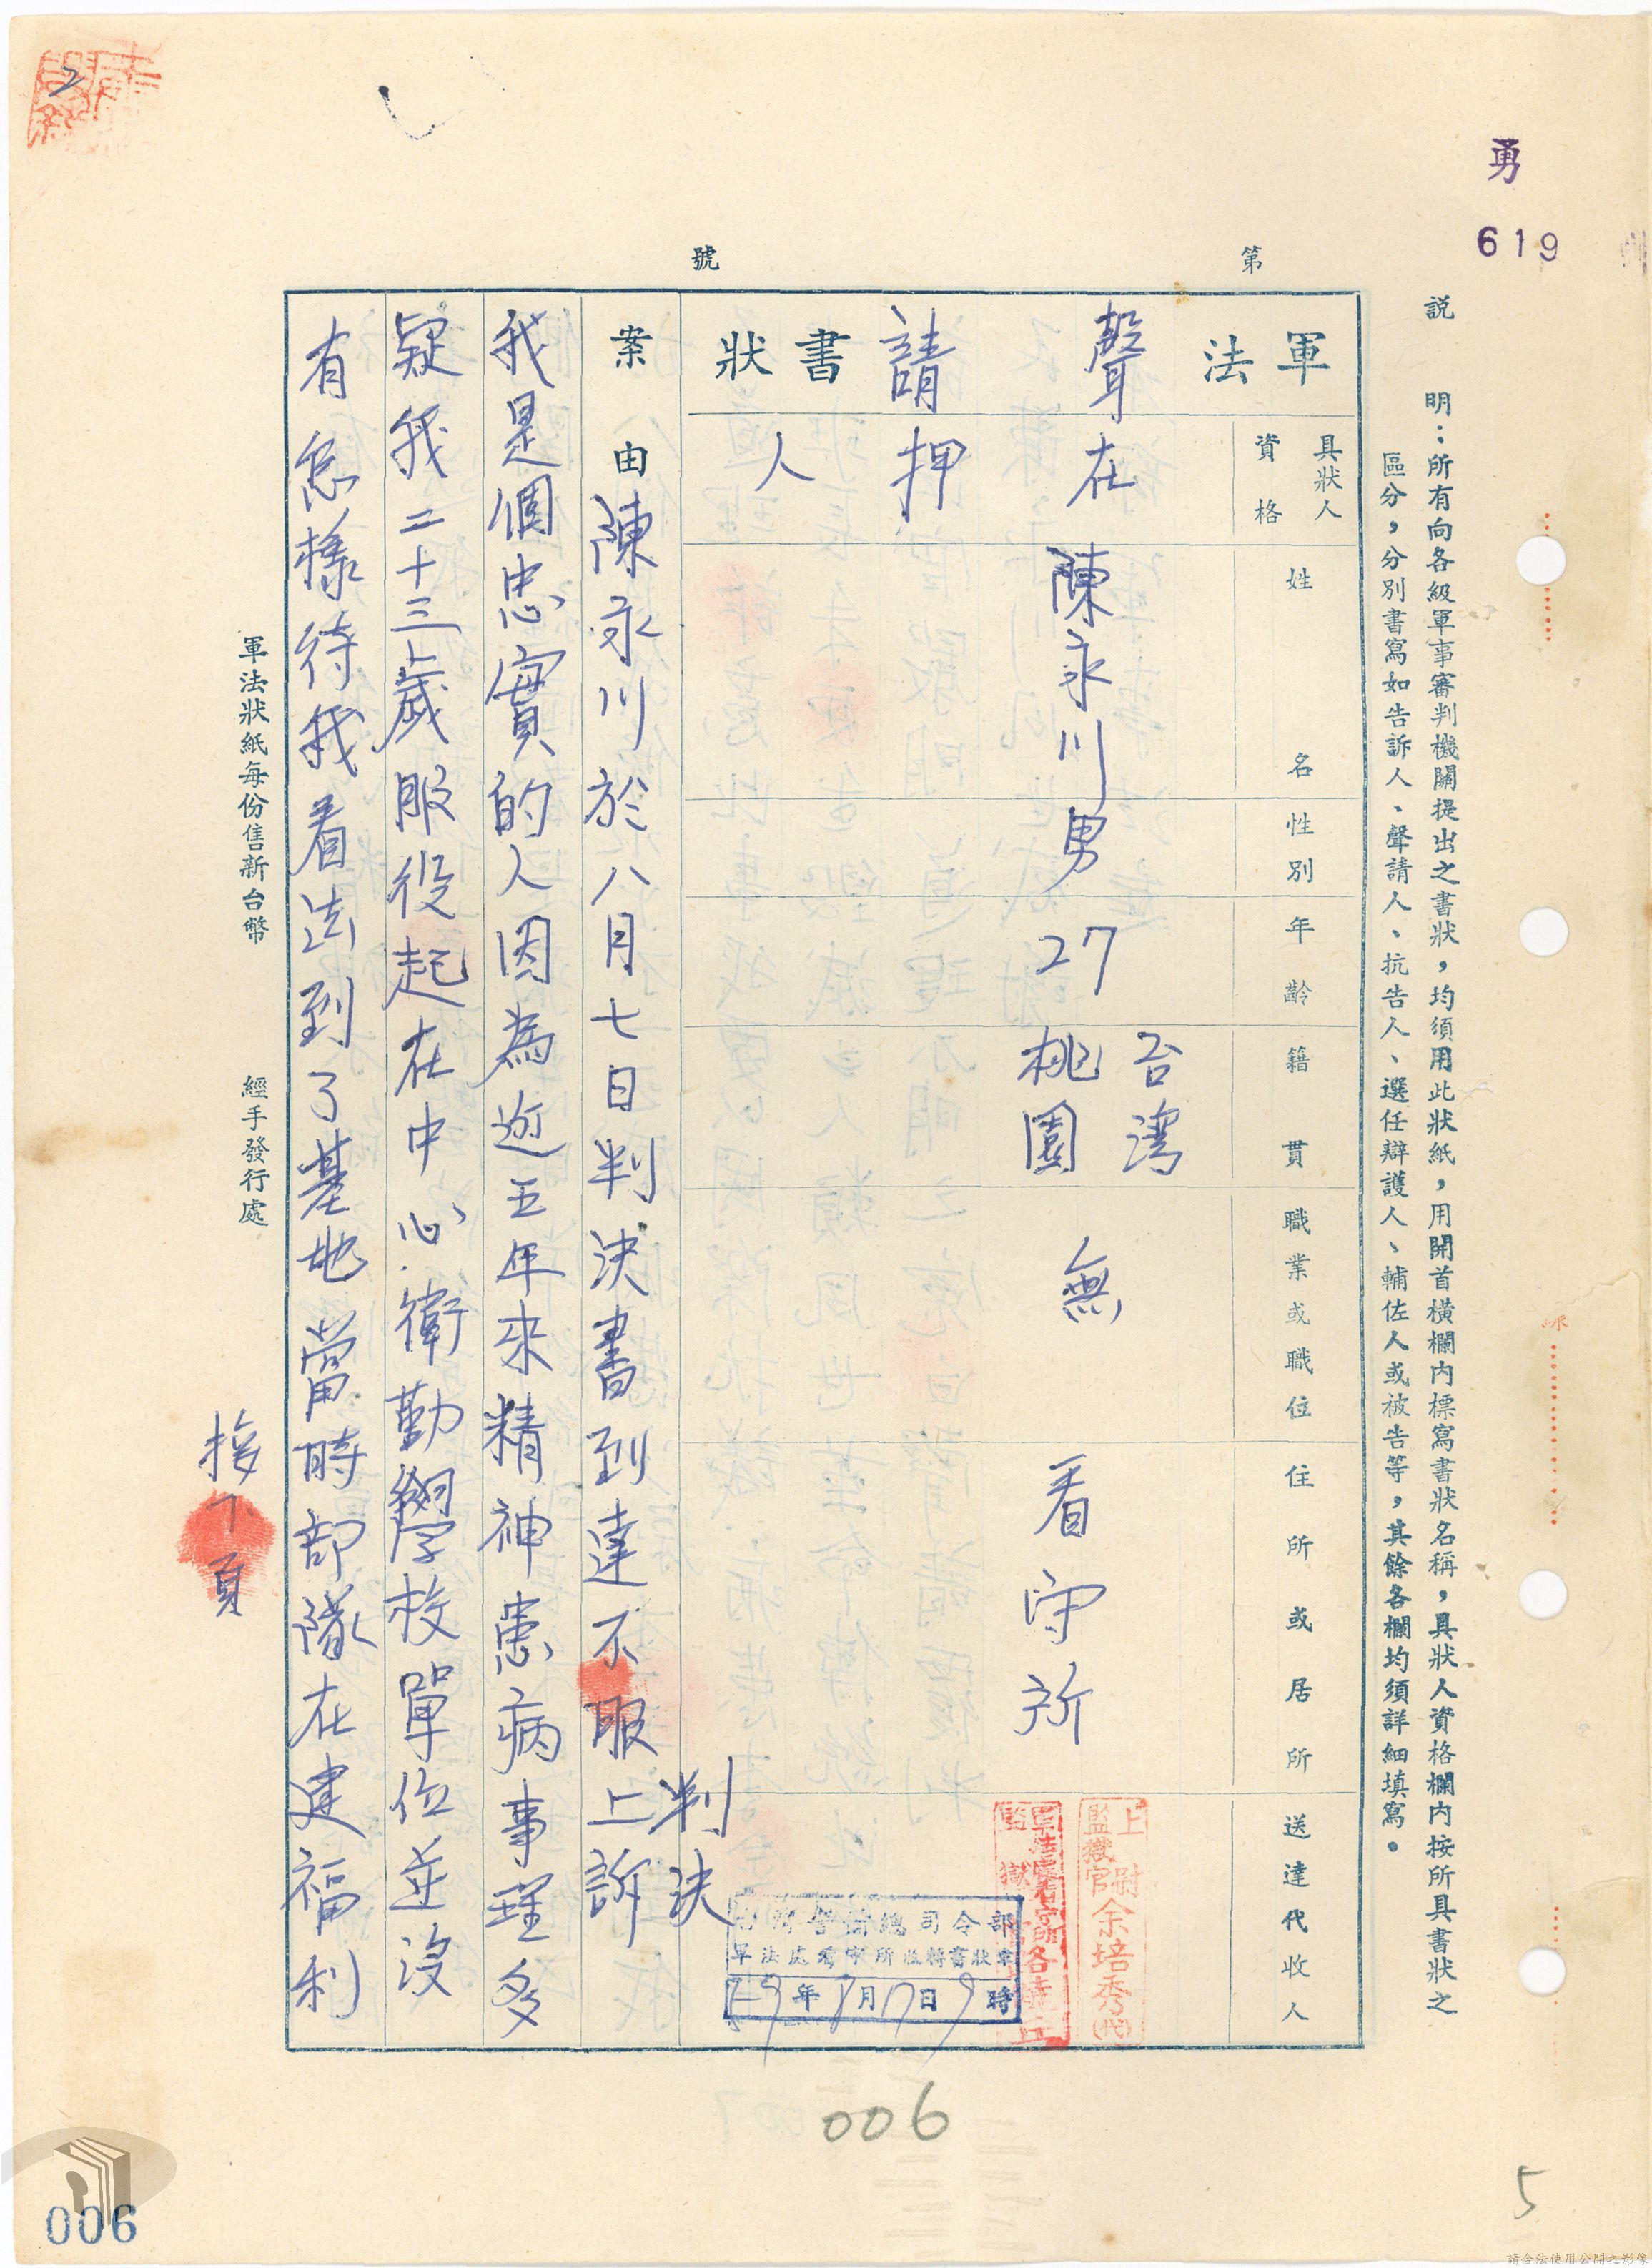 勇
619
説明：所有向各級軍事審判機關提出之書狀，均須用此狀紙，用開首橫欄内標寫書狀名稱，具狀人資格欄内按所具書狀之
區分，分別書寫如告訴人、聲請人、抗告人、選任辯護人、輔佐人或被告等，其餘各欄均須詳細填寫。
第　號
軍法聲請書狀
具狀人資格
在押人
姓名
陳永川
性別
男
年齡
27
籍貫
台灣
桃園
職業或職位
無
住所或居所
看守所
送達代收人
上尉
監獄官余培秀
案由陳永川於八月七日判決書到達不服上訴
判決
我是個忠實的人因為逝五年來精神患病事理多
疑我二十三歲服役起在中心衛勤學校單位並沒
有怎樣待我看法到了基地當時部隊在建福利
接下頁
總司令部
年　月　日　時
軍法狀紙每份售新台幣　經手發行處
2
006
5
006
請合法使用公開之影像